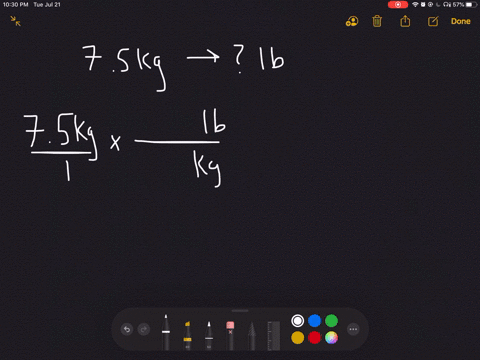 10:30 PM Tue Jul 21
57%
Done
7.5kg → ? lb
7.5kg × lb
1 kg